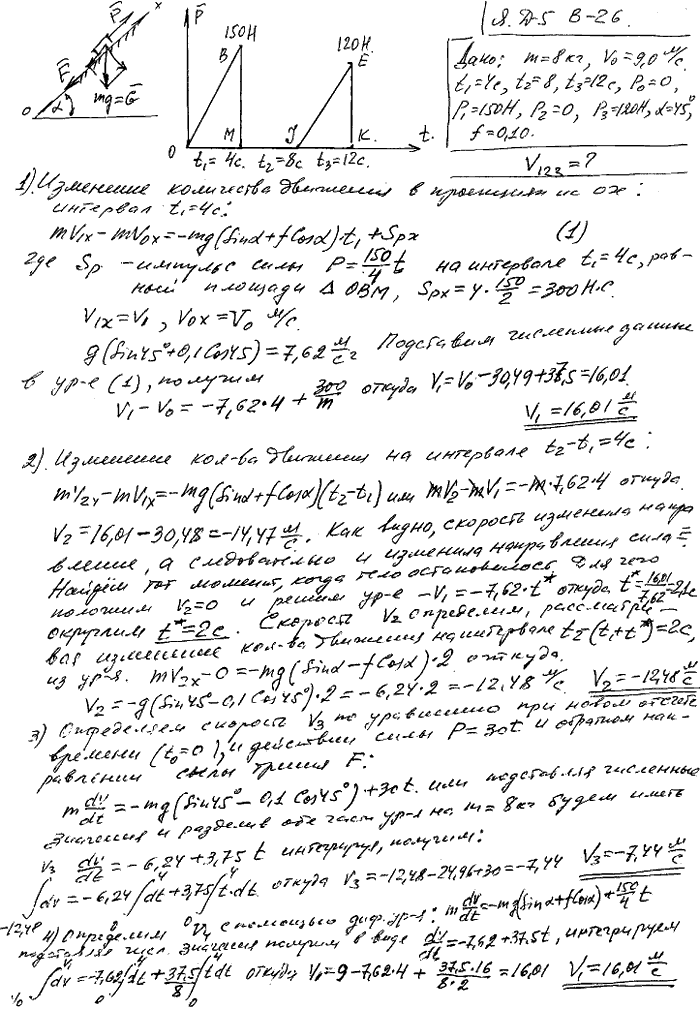 Я. Д-5 В-26.
P̄ x
F̄
O α mg=Ḡ
P̄
150Н
B
120Н.
E
O M J K t.
t₁= 4с t₂=8с t₃=12с.
Дано: m=8кг, V₀=9,0 м/с.
t₁=4с, t₂=8, t₃=12с, P₀=0,
P₁=150Н, P₂=0, P₃=120Н, α=45°,
f=0,10.
V₁₂₃=?
1). Изменение количества движения в проекциях на ох:
интервал t₁=4с:
mV₁ₓ-mV₀ₓ=-mg(Sinα+fCosα)·t₁+Sₚₓ (1)
где Sₚ -импульс силы P=150/4 t на интервале t₁=4с, рав-
ный площади Δ OBM, Sₚₓ=4·150/2=300Н·с.
V₁ₓ=V₁, V₀ₓ=V₀ м/с.
g(Sin45°+0,1Cos45)=7,62 м/с² Подставим численные данные
в ур-е (1), получим
V₁-V₀=-7,62·4+300/m откуда V₁=V₀-30,49+37,5=16,01
V₁=16,01 м/с
2). Изменение кол-ва движения на интервале t₂-t₁=4с:
mV₂ₓ-mV₁ₓ=-mg(Sinα+fCosα)(t₂-t₁) или mV₂-mV₁=-m·7,62·4 откуда
V₂=16,01-30,48=-14,47 м/с. Как видно, скорость изменила напра
вление, а следовательно и изменила направления сила F̄.
Найдём тот момент, когда тело остановилось, для чего
положим V₂=0 и решим ур-е -V₁=-7,62·t* откуда t*=16,01/7,62=2,1с
округлим t*=2с. Скорость V₂ определим, рассматри-
вая изменение кол-ва движения на интервале t₂-(t₁+t*)=2с,
из ур-я. mV₂ₓ-0=-mg(Sinα-fCosα)·2 откуда.
V₂=-g(Sin45-0,1Cos45°)·2=-6,24·2=-12,48 м/с. V₂=-12,48 м/с
3) Определяем скорость V₃ по уравнению при новом отсчёте
времени (t₀=0), и действии силы P=30t и обратном нап-
равлении силы трения F:
m dv/dt=-mg(Sin45°-0,1Cos45°)+30t. или подставляя численные
значения и разделив обе части ур-я на m=8кг будем иметь
dv/dt=-6,24+3,75t интегрируя, получим:
V₃ 4 4
∫dv=-6,24∫dt+3,75∫t·dt. откуда V₃=-12,48-24,96+30=-7,44 V₃=-7,44 м/с
-12,48 0 0
4) Определим V₁ с помощью диф.ур-я: m dv/dt=-mg(Sinα+fCosα)+150/4 t
подставляя числ. значения получим в виде dv/dt=-7,62+37,5t, интегрируем
V₁ 4 4
∫dv=-7,62∫dt+37,5/8∫tdt откуда V₁=9-7,62·4+37,5·16/8·2=16,01 V₁=16,01 м/с
V₀ 0 0